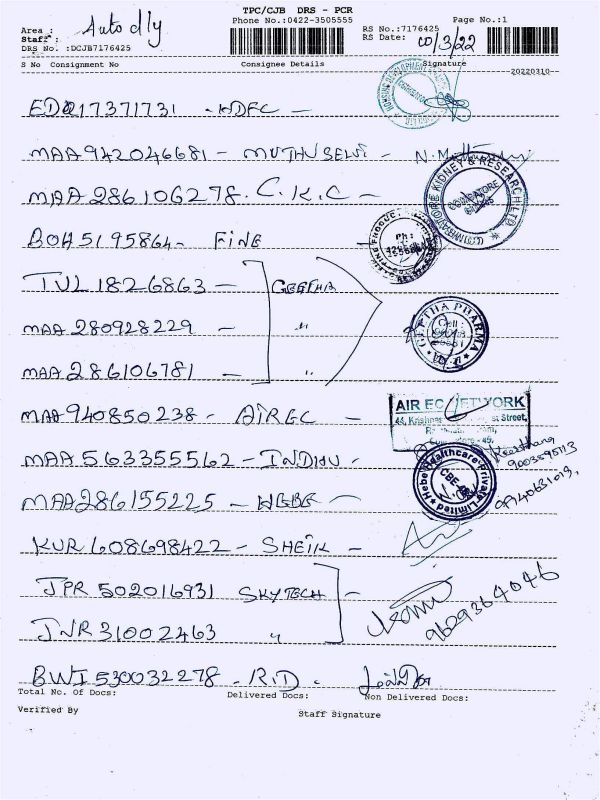 TPC/CJB DRS - PCR
Area : Auto dlly Phone No.:0422-3505555 RS No.:7176425 Page No.:1
Staff: RS Date: 10/3/22
DRS No. :DCJB7176425
S No Consignment No Consignee Details Signature
20220310-
EDQ217371731 - HDFC -
MAA942046681 - MUTHUSELVI -
MAA286106278. C.K.C -
COIMBATORE KIDNEY & RESEARCH LTD
BOH5195864- FINE
TVL1826863 - GEETHA
MAA280928229 - "
GEETHA PHARMA
MAA286106781 - "
MAA940850238 - AIREC -
AIR EC NETWORK
44, Krishna st Street,
MAA563355562 - INDHU -
9003895113
Hebe Healthcare Private Limited
CBE
MAA286155225 - HEBE -
KUR608698422 - SHEIK -
JPR502016931 SKYTECH -
9629364046
JNR31002463 "
BWI530032278 - R.D -
Total No. Of Docs: Delivered Docs: Non Delivered Docs:
Verified By Staff Signature